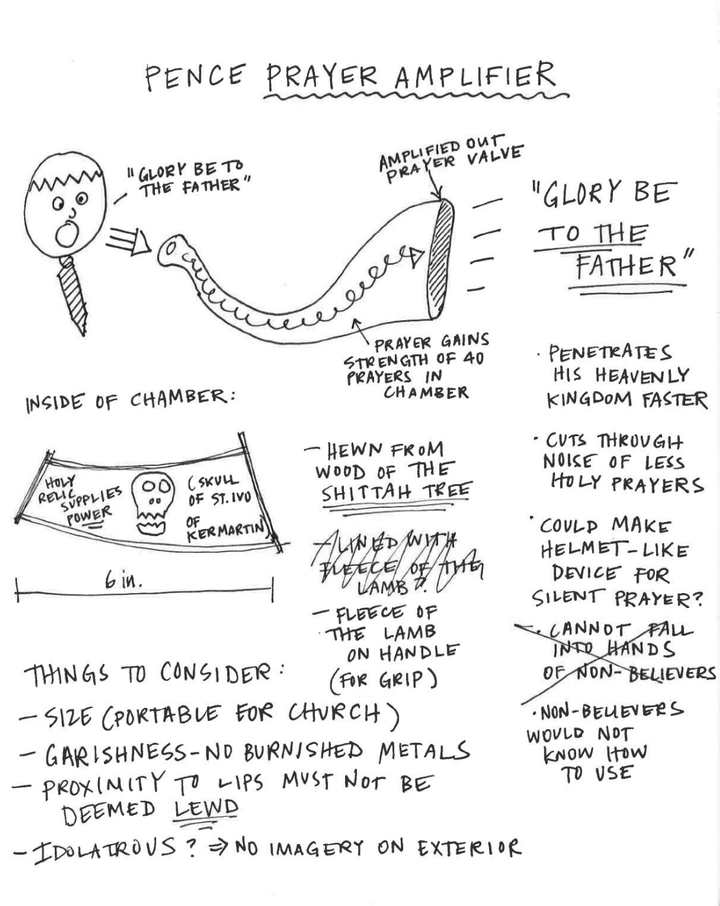 PENCE PRAYER AMPLIFIER
"GLORY BE TO
THE FATHER"
AMPLIFIED OUT
PRAYER VALVE
"GLORY BE
TO THE
FATHER"
PRAYER GAINS
STRENGTH OF 40
PRAYERS IN
CHAMBER
INSIDE OF CHAMBER:
HOLY
RELIC
SUPPLIES
POWER
(SKULL
OF ST. IVO
OF
KERMARTIN)
6 in.
- HEWN FROM
WOOD OF THE
SHITTAH TREE
- LINED WITH
FLEECE OF THE
LAMB?
- FLEECE OF
THE LAMB
ON HANDLE
(FOR GRIP)
· PENETRATES
HIS HEAVENLY
KINGDOM FASTER
· CUTS THROUGH
NOISE OF LESS
HOLY PRAYERS
· COULD MAKE
HELMET-LIKE
DEVICE FOR
SILENT PRAYER?
· CANNOT FALL
INTO HANDS
OF NON-BELIEVERS
· NON-BELIEVERS
WOULD NOT
KNOW HOW
TO USE
THINGS TO CONSIDER:
- SIZE (PORTABLE FOR CHURCH)
- GARISHNESS - NO BURNISHED METALS
- PROXIMITY TO LIPS MUST NOT BE
DEEMED LEWD
- IDOLATROUS? ⇒ NO IMAGERY ON EXTERIOR